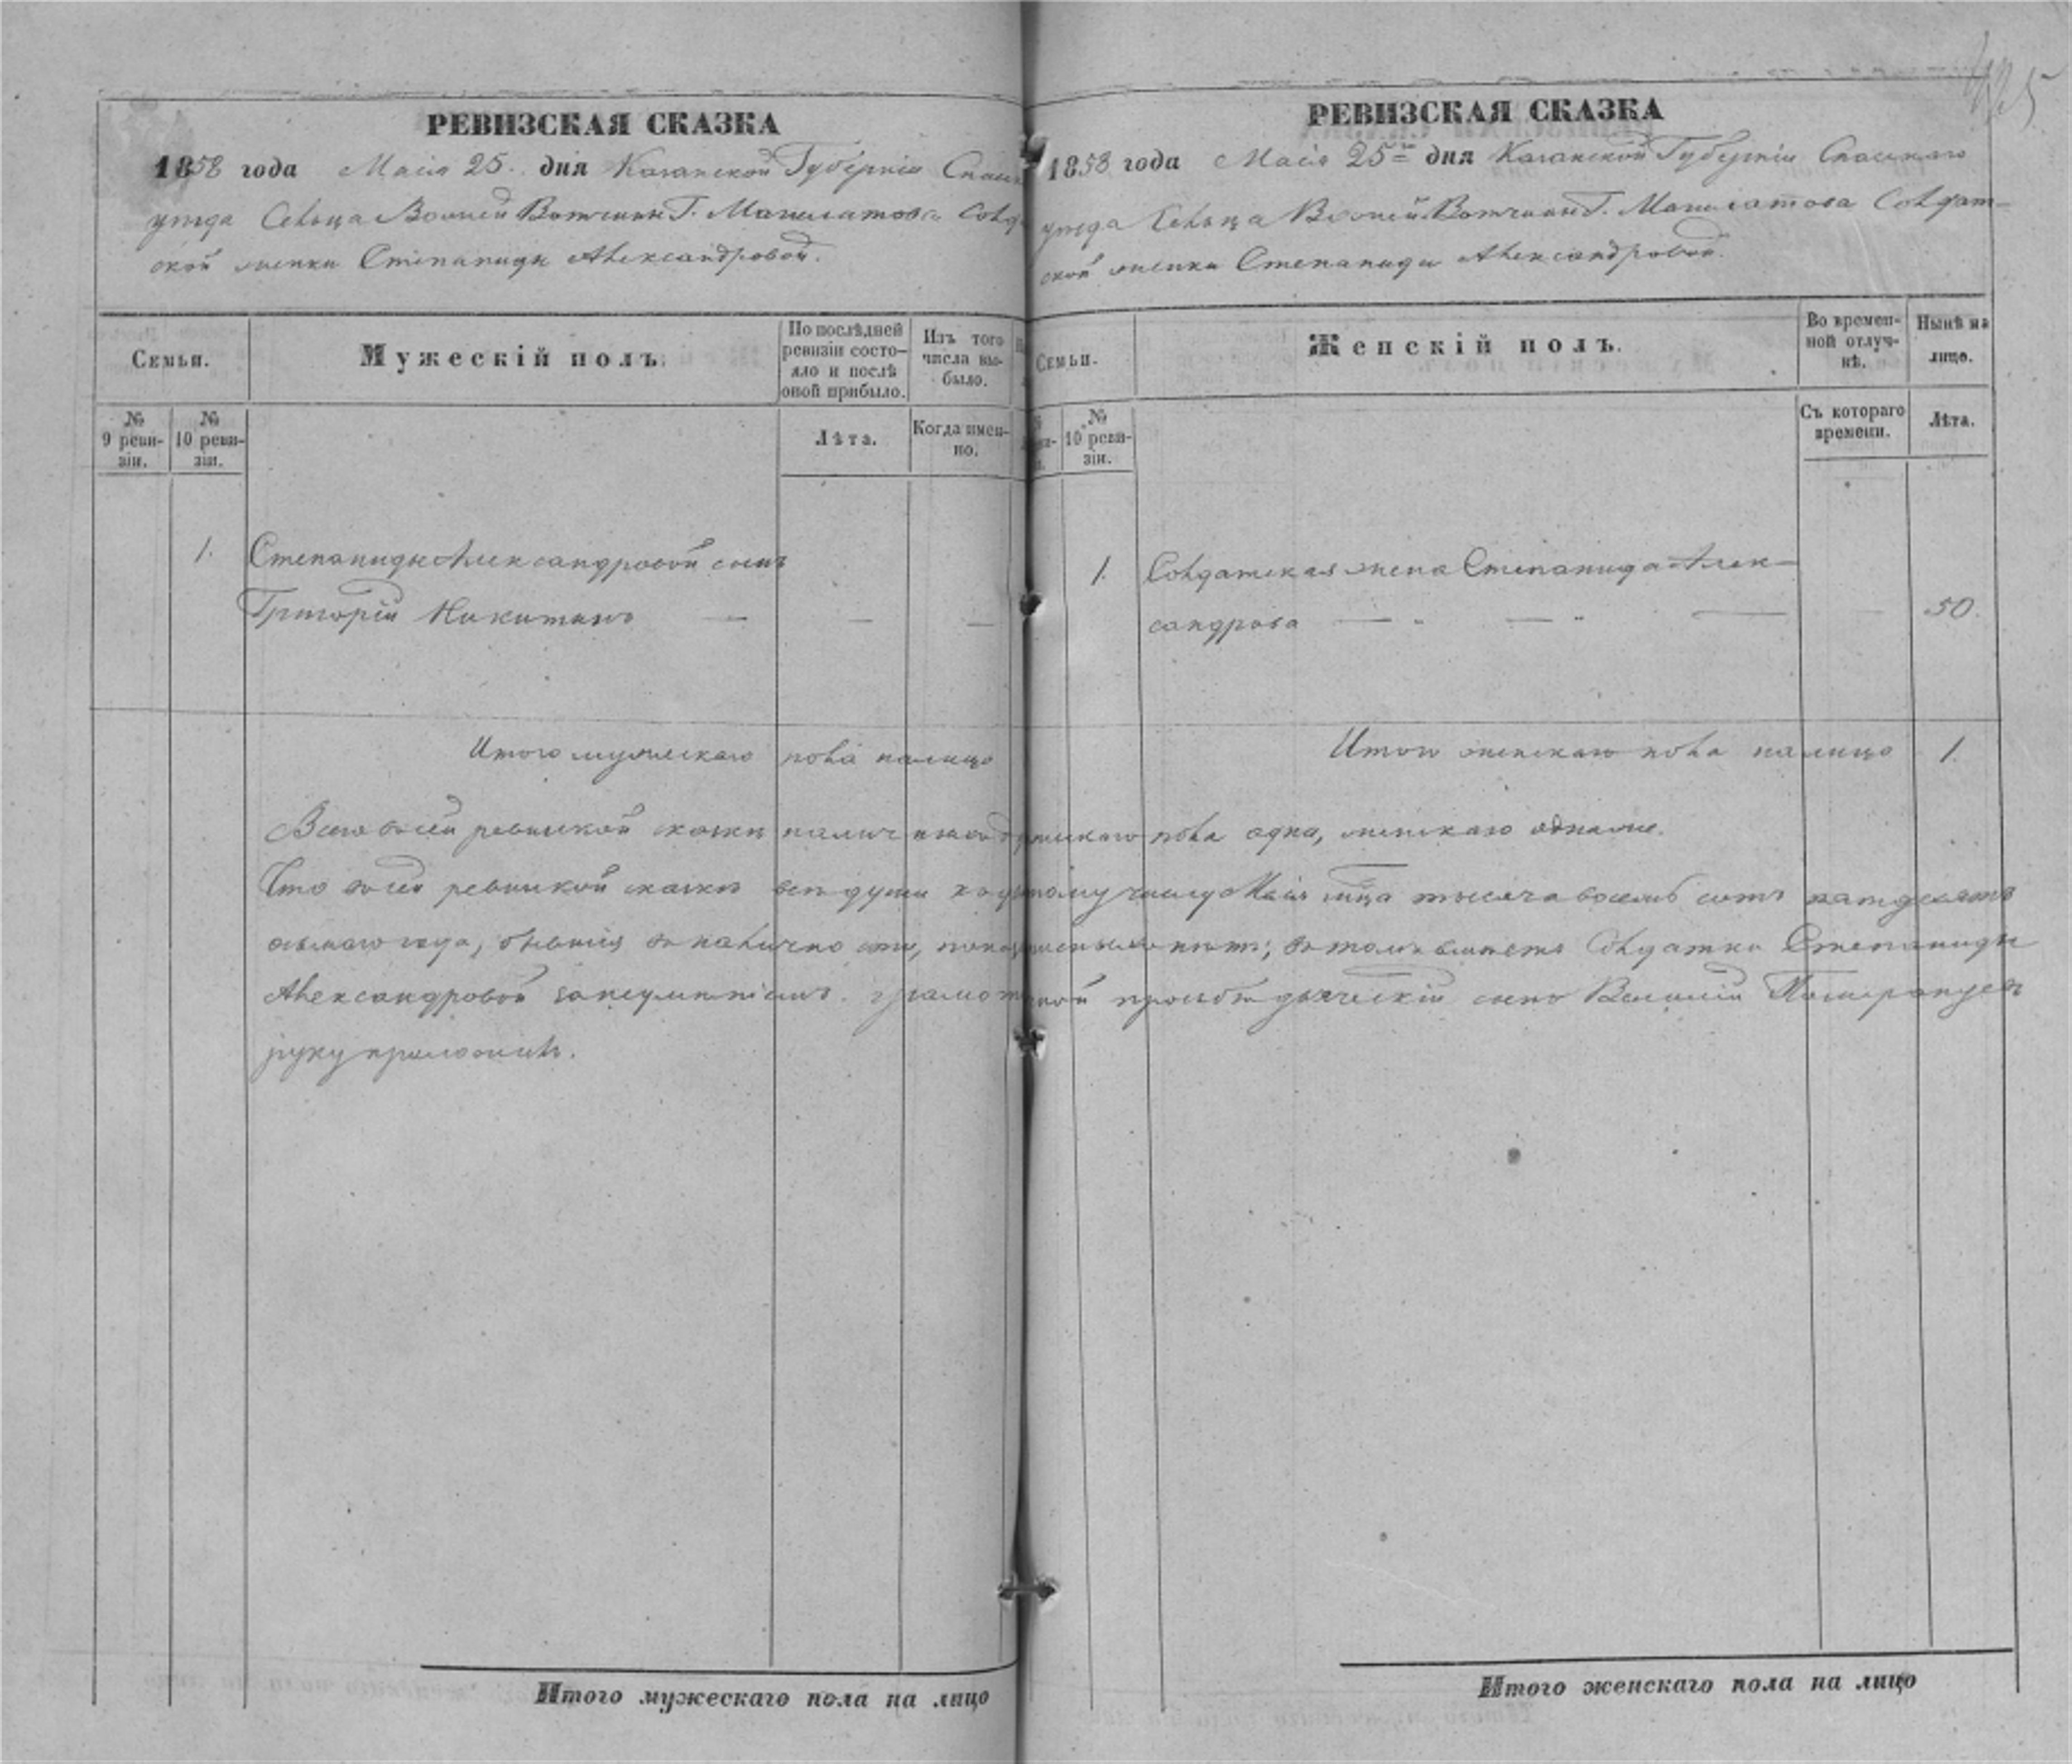 425
РЕВИЗСКАЯ СКАЗКА
1858 года Маія 25. дня Казанской Губерніи Спаск
уезда Сельца Волчей Вотчины Г. Солд
ской женки Степаниды Александровой.
Семьи.
Мужескій полъ.
По послѣдней
ревизіи состо-
яло и послѣ
оной прибыло.
Изъ того
числа вы-
было.
№
9 реви-
зіи.
№
10 реви-
зіи.
Лѣта.
Когда имен-
но.
1. Степаниды Александровой сынъ
Григорій Никитинъ — — —
Итого мужескаго пола налицо
РЕВИЗСКАЯ СКАЗКА
1858 года Маія 25го дня Казанской Губерніи Спаскаго
уезда Сельца Вотчины Г. Солдат-
ской женки Степаниды Александровой.
Семьи.
Женскій полъ.
Во времен-
ной отлуч-
кѣ.
Нынѣ на
лицо.
№
10 реви-
зіи.
Съ котораго
времени.
Лѣта.
1. Солдатская жена Степанида Алек-
сандрова — " — " — — 50.
Итого женскаго пола налицо 1.
Всего въ сей ревизской сказкѣ налично мужескаго пола одна, женскаго одна же.
Что въ сей ревизской сказкѣ всѣ души къ числу Маія мца тысяча восемь сотъ пятдесятъ
осьмаго года, бывшія въ наличности, показаны и нѣтъ; въ томъ вмѣсто Солдатки Степаниды
Александровой за неуменіемъ грамотѣ по ея прозьбѣ сынъ Василій
руку приложилъ.
Итого мужескаго пола на лицо
Итого женскаго пола на лицо